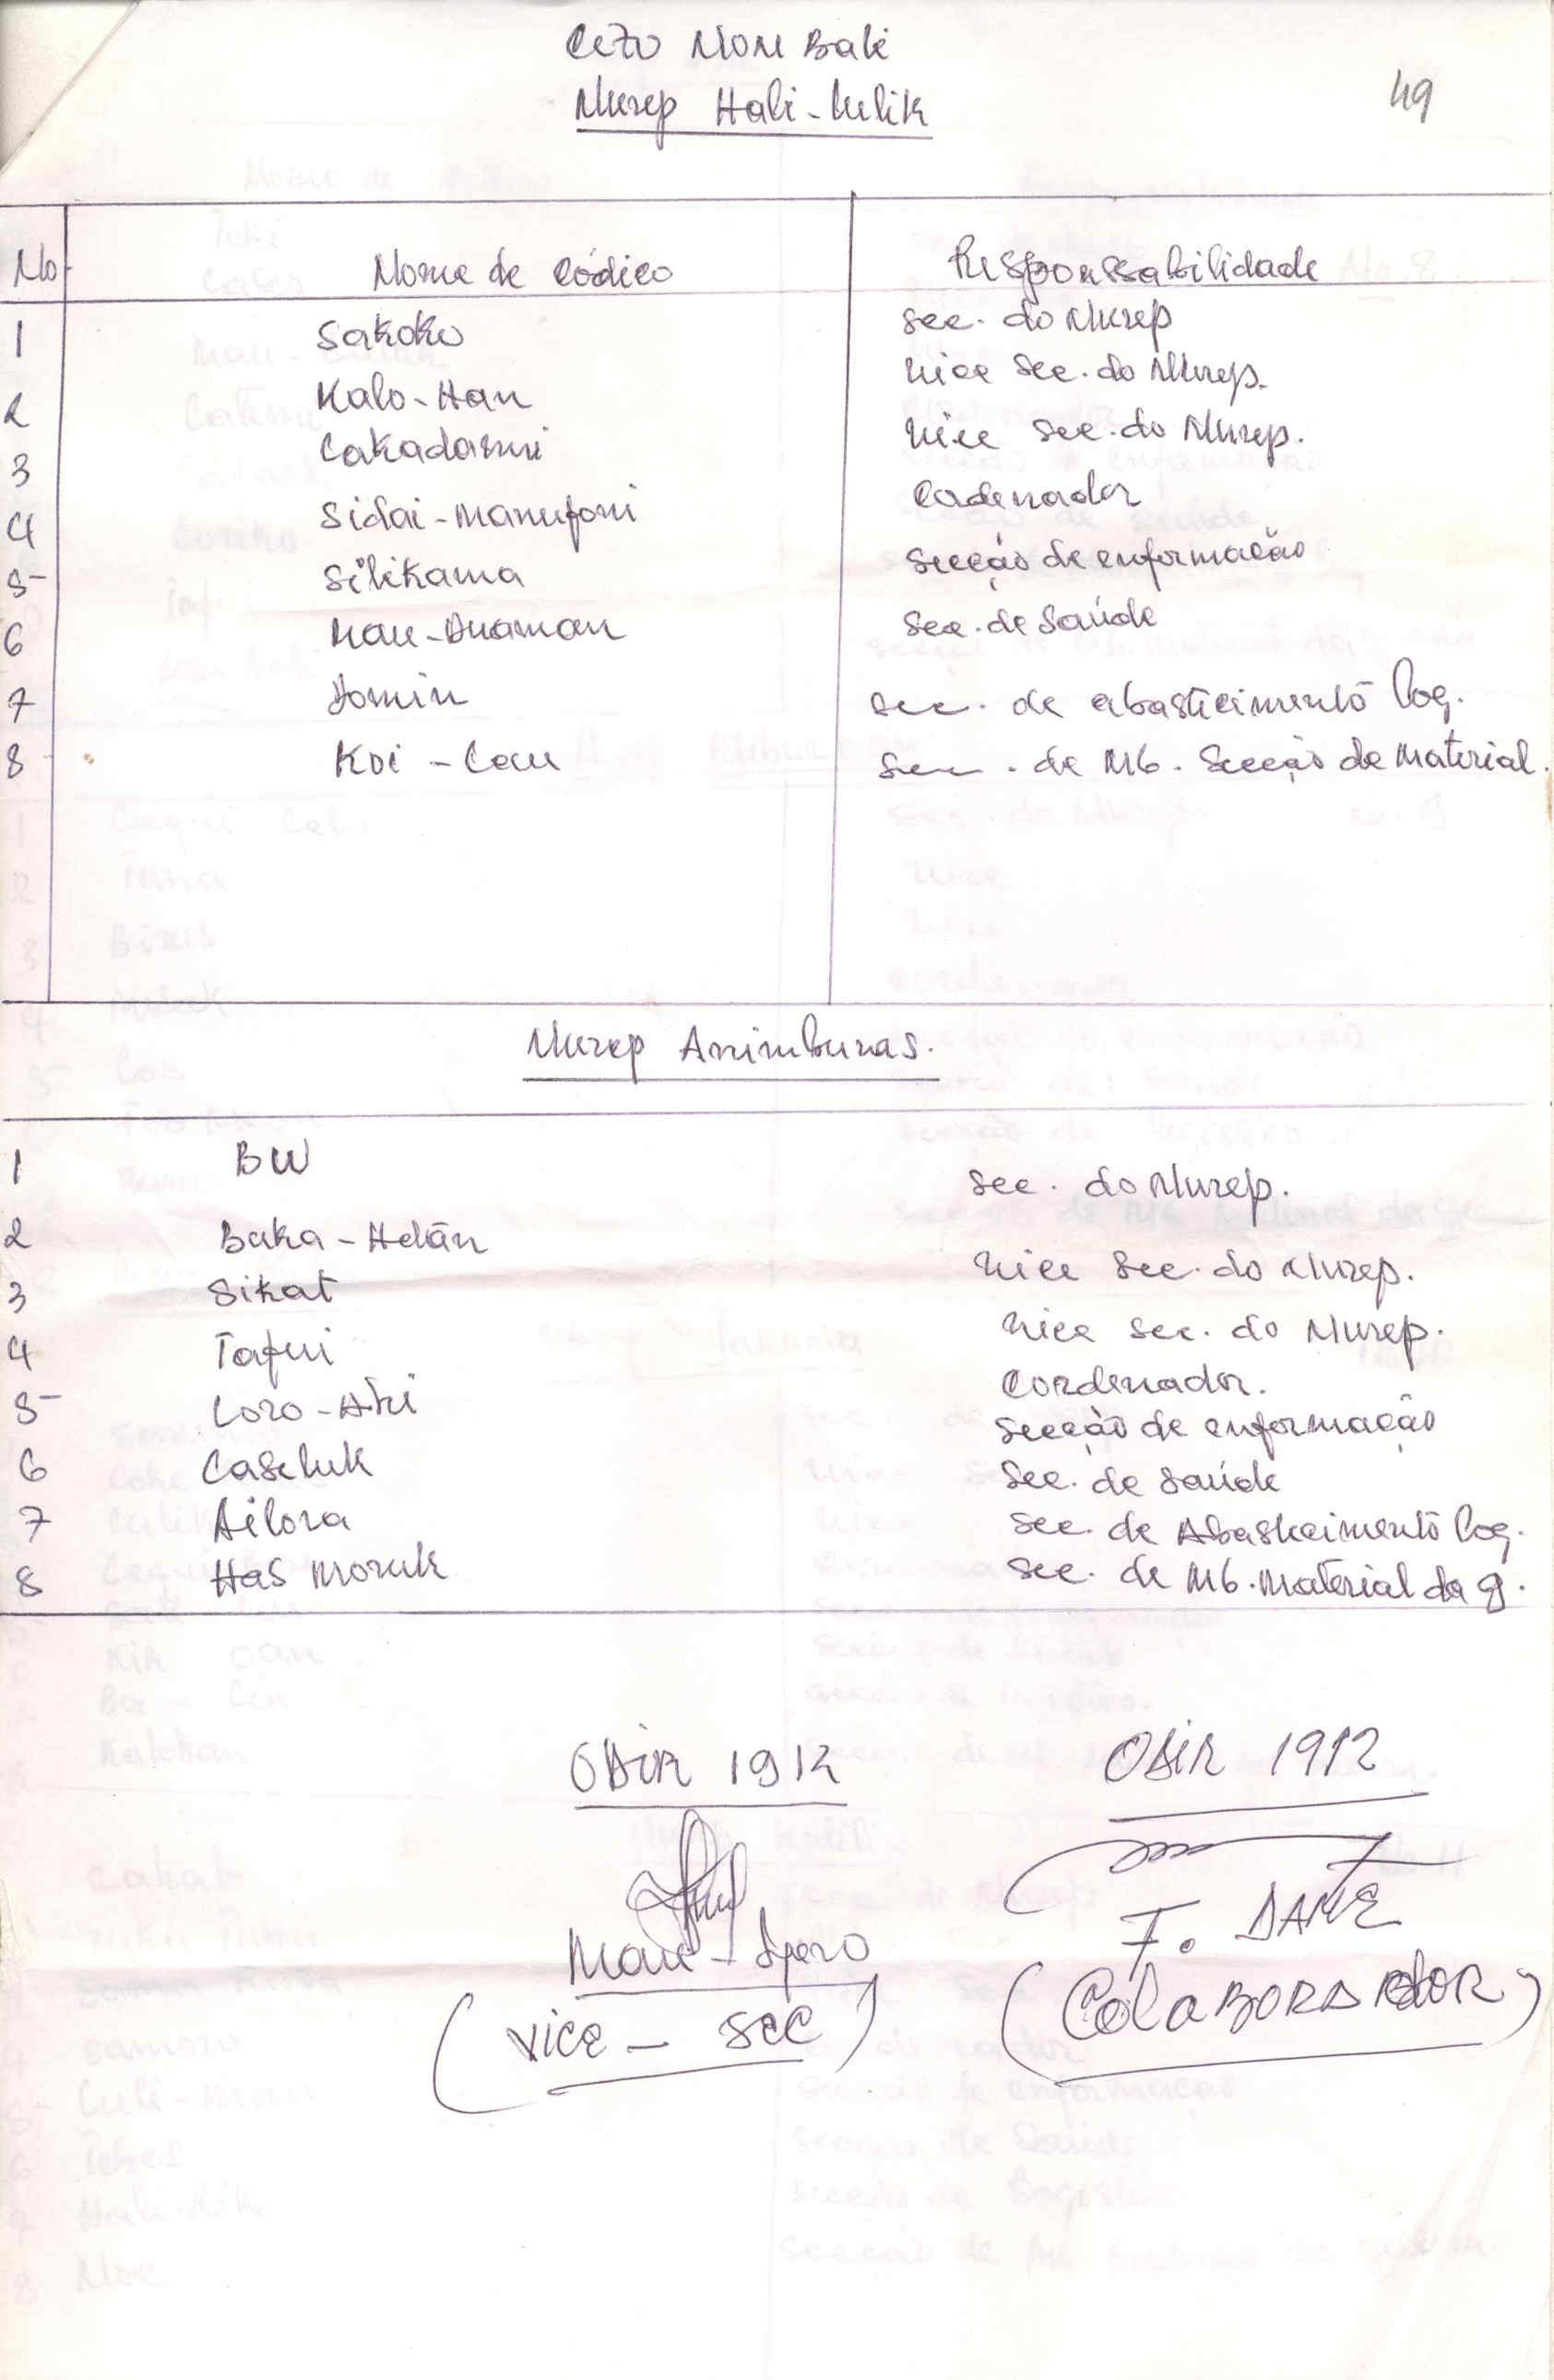 Cezo None Bale
Nurep Hali-Lulik
49
No Nome de Códico Responssabilidade
1 Sakoko sec. do Nurep
2 Kalo-Han vice sec. do Nurep.
3 Cakadarui vice sec. do Nurep.
4 Sidai-Manufoni Cordenador
5 Silikama Secção de enformação
6 Mau-Anaman Sec. de Saúde
7 Domin sec. de abasticimento log.
8 Koi - Lau sec. de M6. Secção de Material.
Nurep Anin Bunas.
1 BW sec. do Nurep.
2 Baka-Helãn vice sec. do Nurep.
3 Sikat vice sec. do Nurep.
4 Tafui Cordenador.
5 Loro-Aki Secção de enformação
6 Caseluk Sec. de Saúde
7 Ailora sec. de Abasteimento log.
8 Has Moruk sec. de M6. Material da g.
OBIR 1912 OBIR 1912
Mau - Spero F. DAKE
(Vice - Sec) (Colaborador)